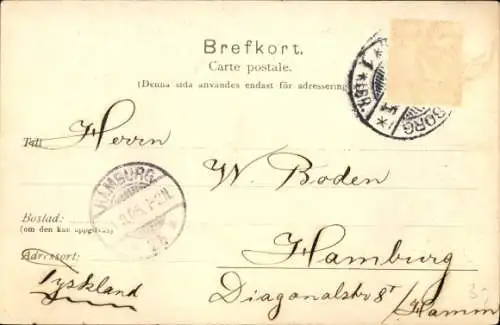 Brefkort.
Carte postale.
(Denna sida användes endast för adressering
BORG
Till Herrn
W. Boden
HAMBURG
Bostad:
(om den kan uppgifvas)
Hamburg
Adressort:
Tyskland
Diagonalstr 8I
/Hamm